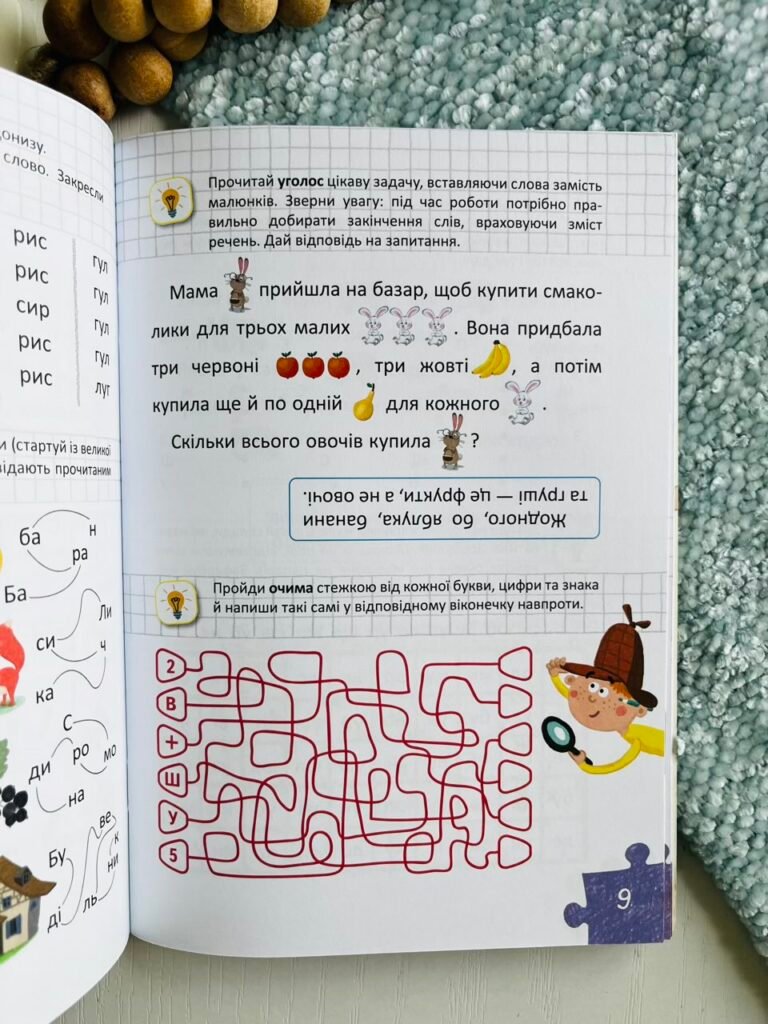 донизу.
слово. Закресли
рис
гул
рис
гул
сир
гул
рис
гул
рис
луг
и (стартуй із великої
відають прочитаним
ба
н
ра
Ба
Ли
си
ч
ка
С
ди
ро
мо
на
ве
к
Бу
ни
ді
ль
Прочитай уголос цікаву задачу, вставляючи слова замість
малюнків. Зверни увагу: під час роботи потрібно пра-
вильно добирати закінчення слів, враховуючи зміст
речень. Дай відповідь на запитання.
Мама прийшла на базар, щоб купити смако-
лики для трьох малих . Вона придбала
три червоні , три жовті , а потім
купила ще й по одній для кожного .
Скільки всього овочів купила ?
Жодного, бо яблука, банани
та груші — це фрукти, а не овочі.
Пройди очима стежкою від кожної букви, цифри та знака
й напиши такі самі у відповідному віконечку навпроти.
2
В
+
Ш
У
5
9